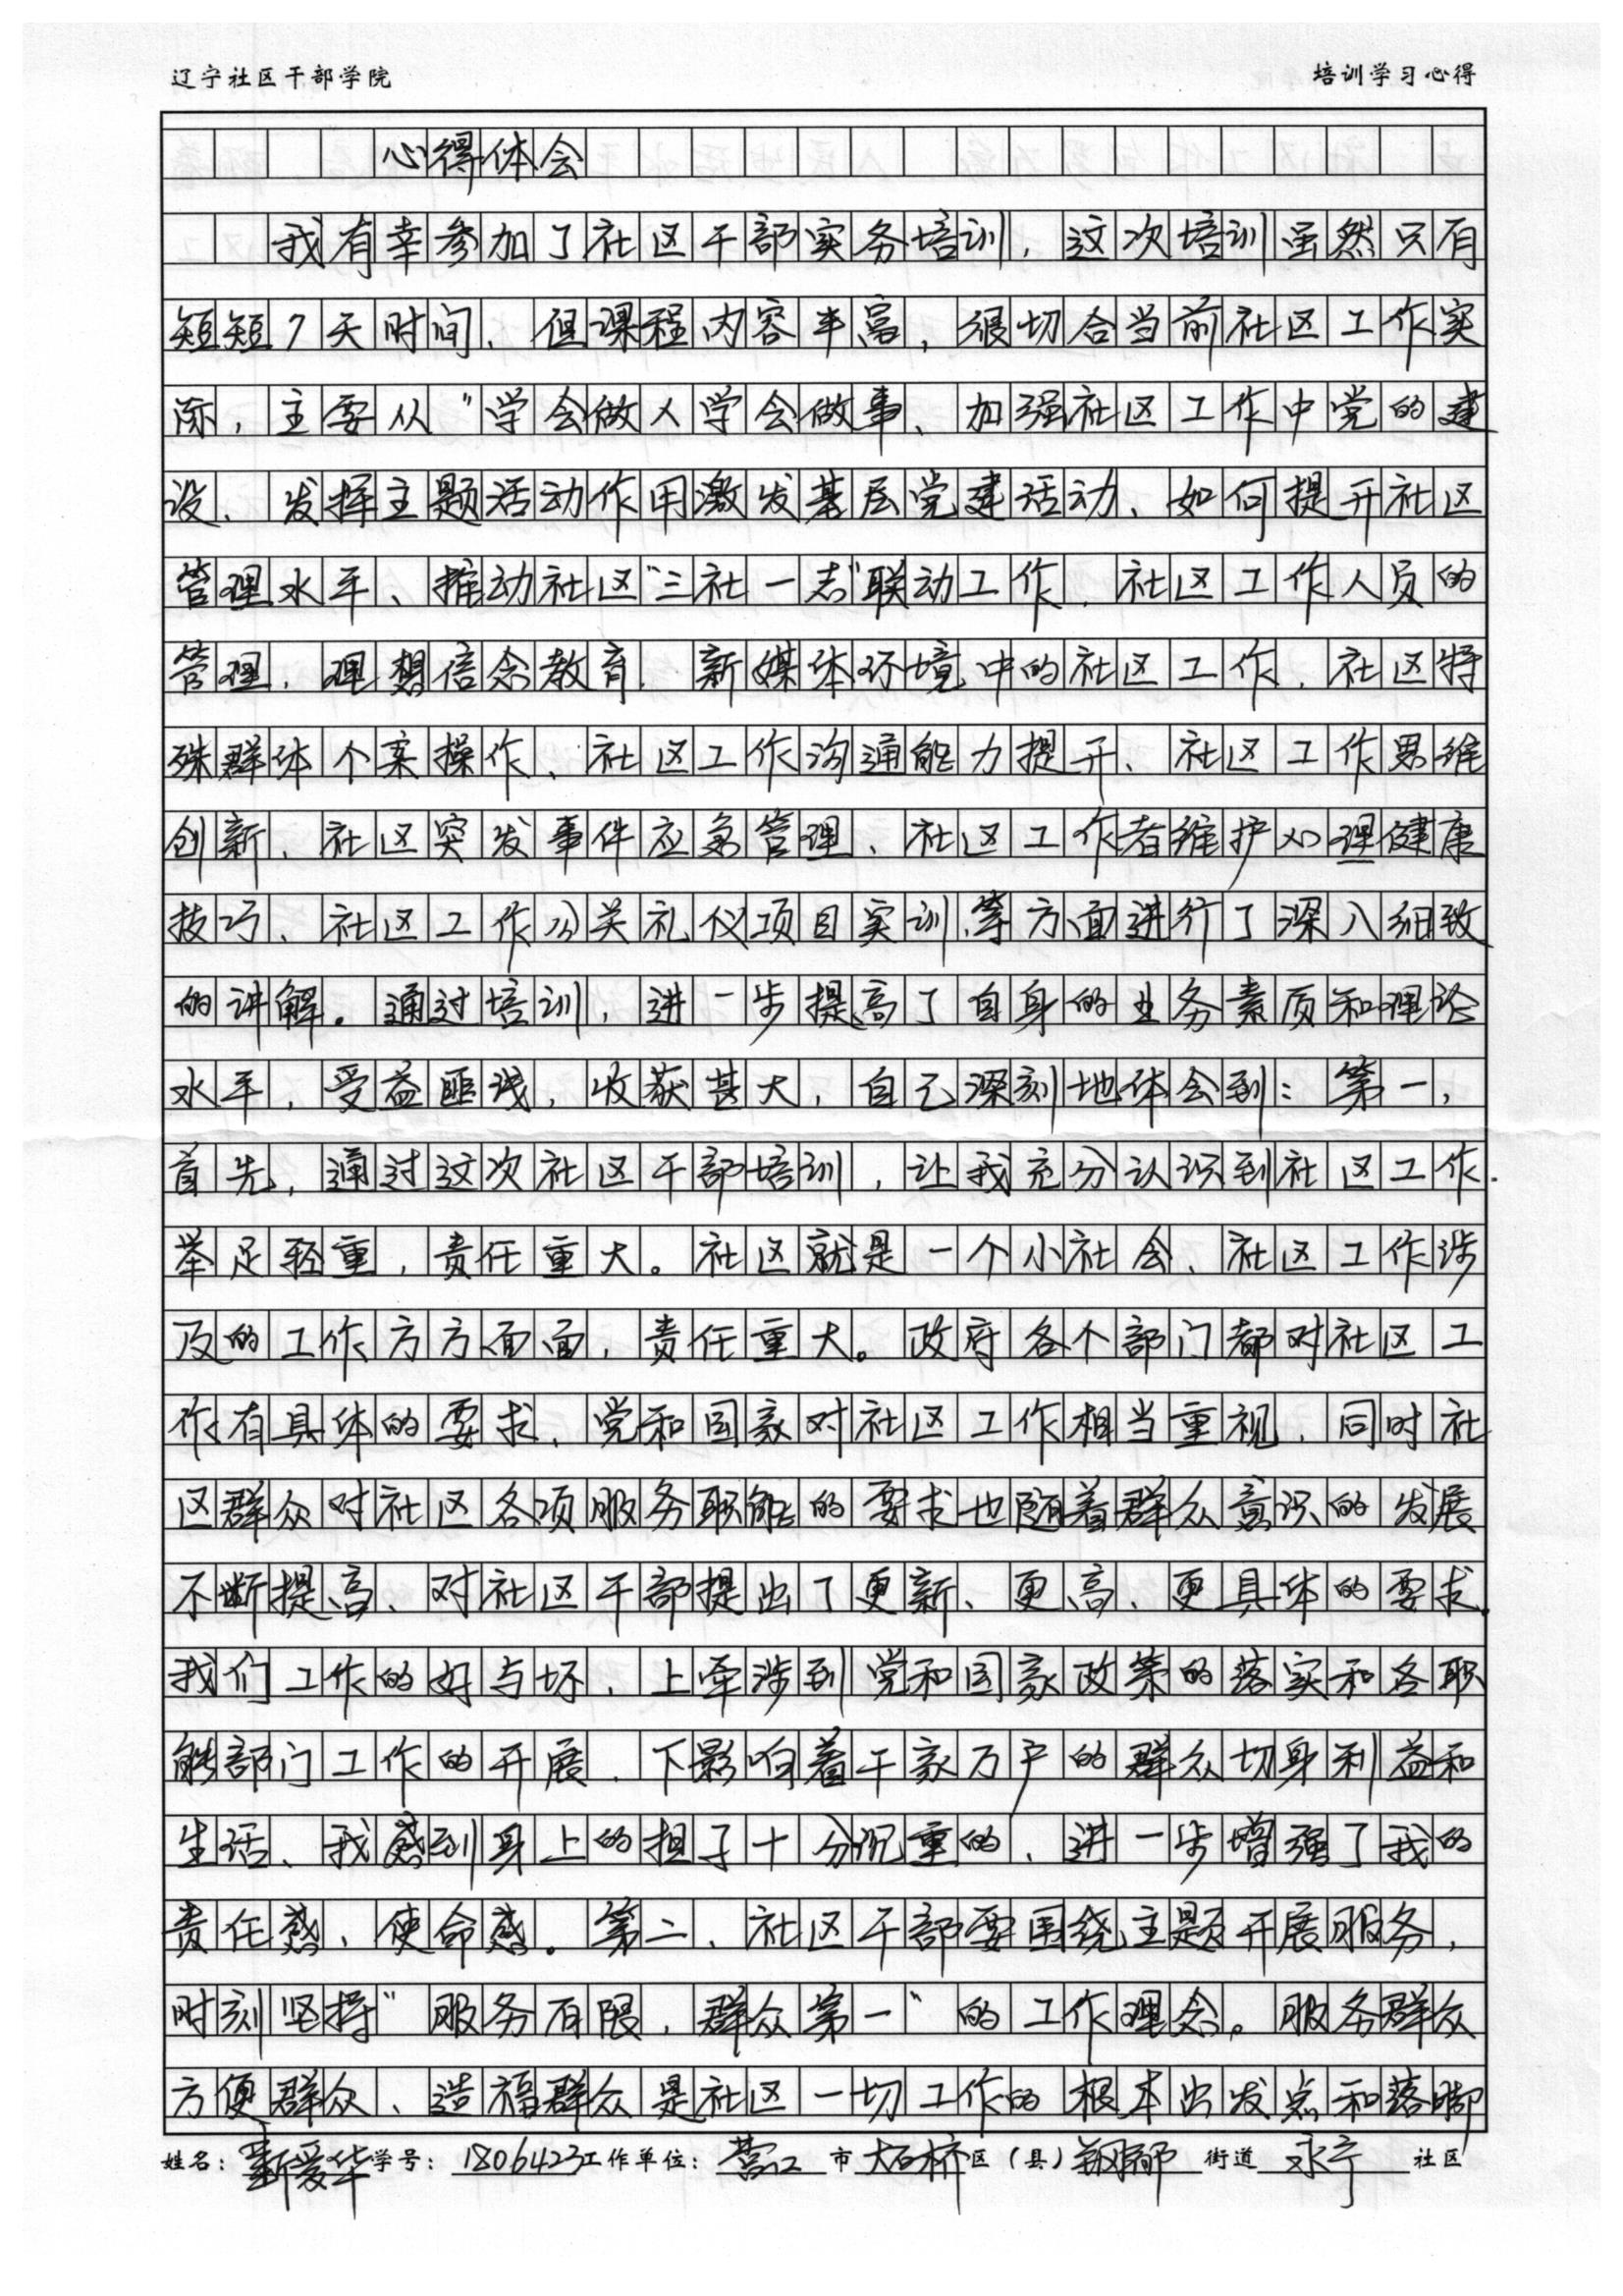 辽宁社区干部学院 培训学习心得
心得体会
我有幸参加了社区干部实务培训，这次培训虽然只有
短短7天时间、但课程内容丰富，很切合当前社区工作实
际，主要从"学会做人学会做事、加强社区工作中党的建
设、发挥主题活动作用激发基层党建活动、如何提升社区
管理水平、推动社区"三社一志"联动工作、社区工作人员的
管理、理想信念教育、新媒体环境中的社区工作、社区特
殊群体个案操作、社区工作沟通能力提升、社区工作思维
创新、社区突发事件应急管理、社区工作者维护心理健康
技巧、社区工作公关礼仪项目实训、等方面进行了深入细致
的讲解。通过培训，进一步提高了自身的业务素质和理论
水平，受益匪浅，收获甚大，自己深刻地体会到：第一，
首先，通过这次社区干部培训，让我充分认识到社区工作.
举足轻重，责任重大。社区就是一个小社会、社区工作涉
及的工作方方面面，责任重大。政府各个部门都对社区工
作有具体的要求、党和国家对社区工作相当重视、同时社
区群众对社区各项服务职能的要求也随着群众意识的发展
不断提高、对社区干部提出了更新、更高、更具体的要求。
我们工作的好与坏、上牵涉到党和国家政策的落实和各职
能部门工作的开展、下影响着千家万户的群众切身利益和
生活、我感到身上的担子十分沉重的、进一步增强了我的
责任感、使命感。第二、社区干部要围绕主题开展服务，
时刻坚持"服务有限，群众第一"的工作理念。服务群众
方便群众、造福群众是社区一切工作的根本出发点和落脚
姓名：靳爱华 学号：1806423 工作单位：营口 市 大石桥 区（县） 钢都 街道 永宁 社区